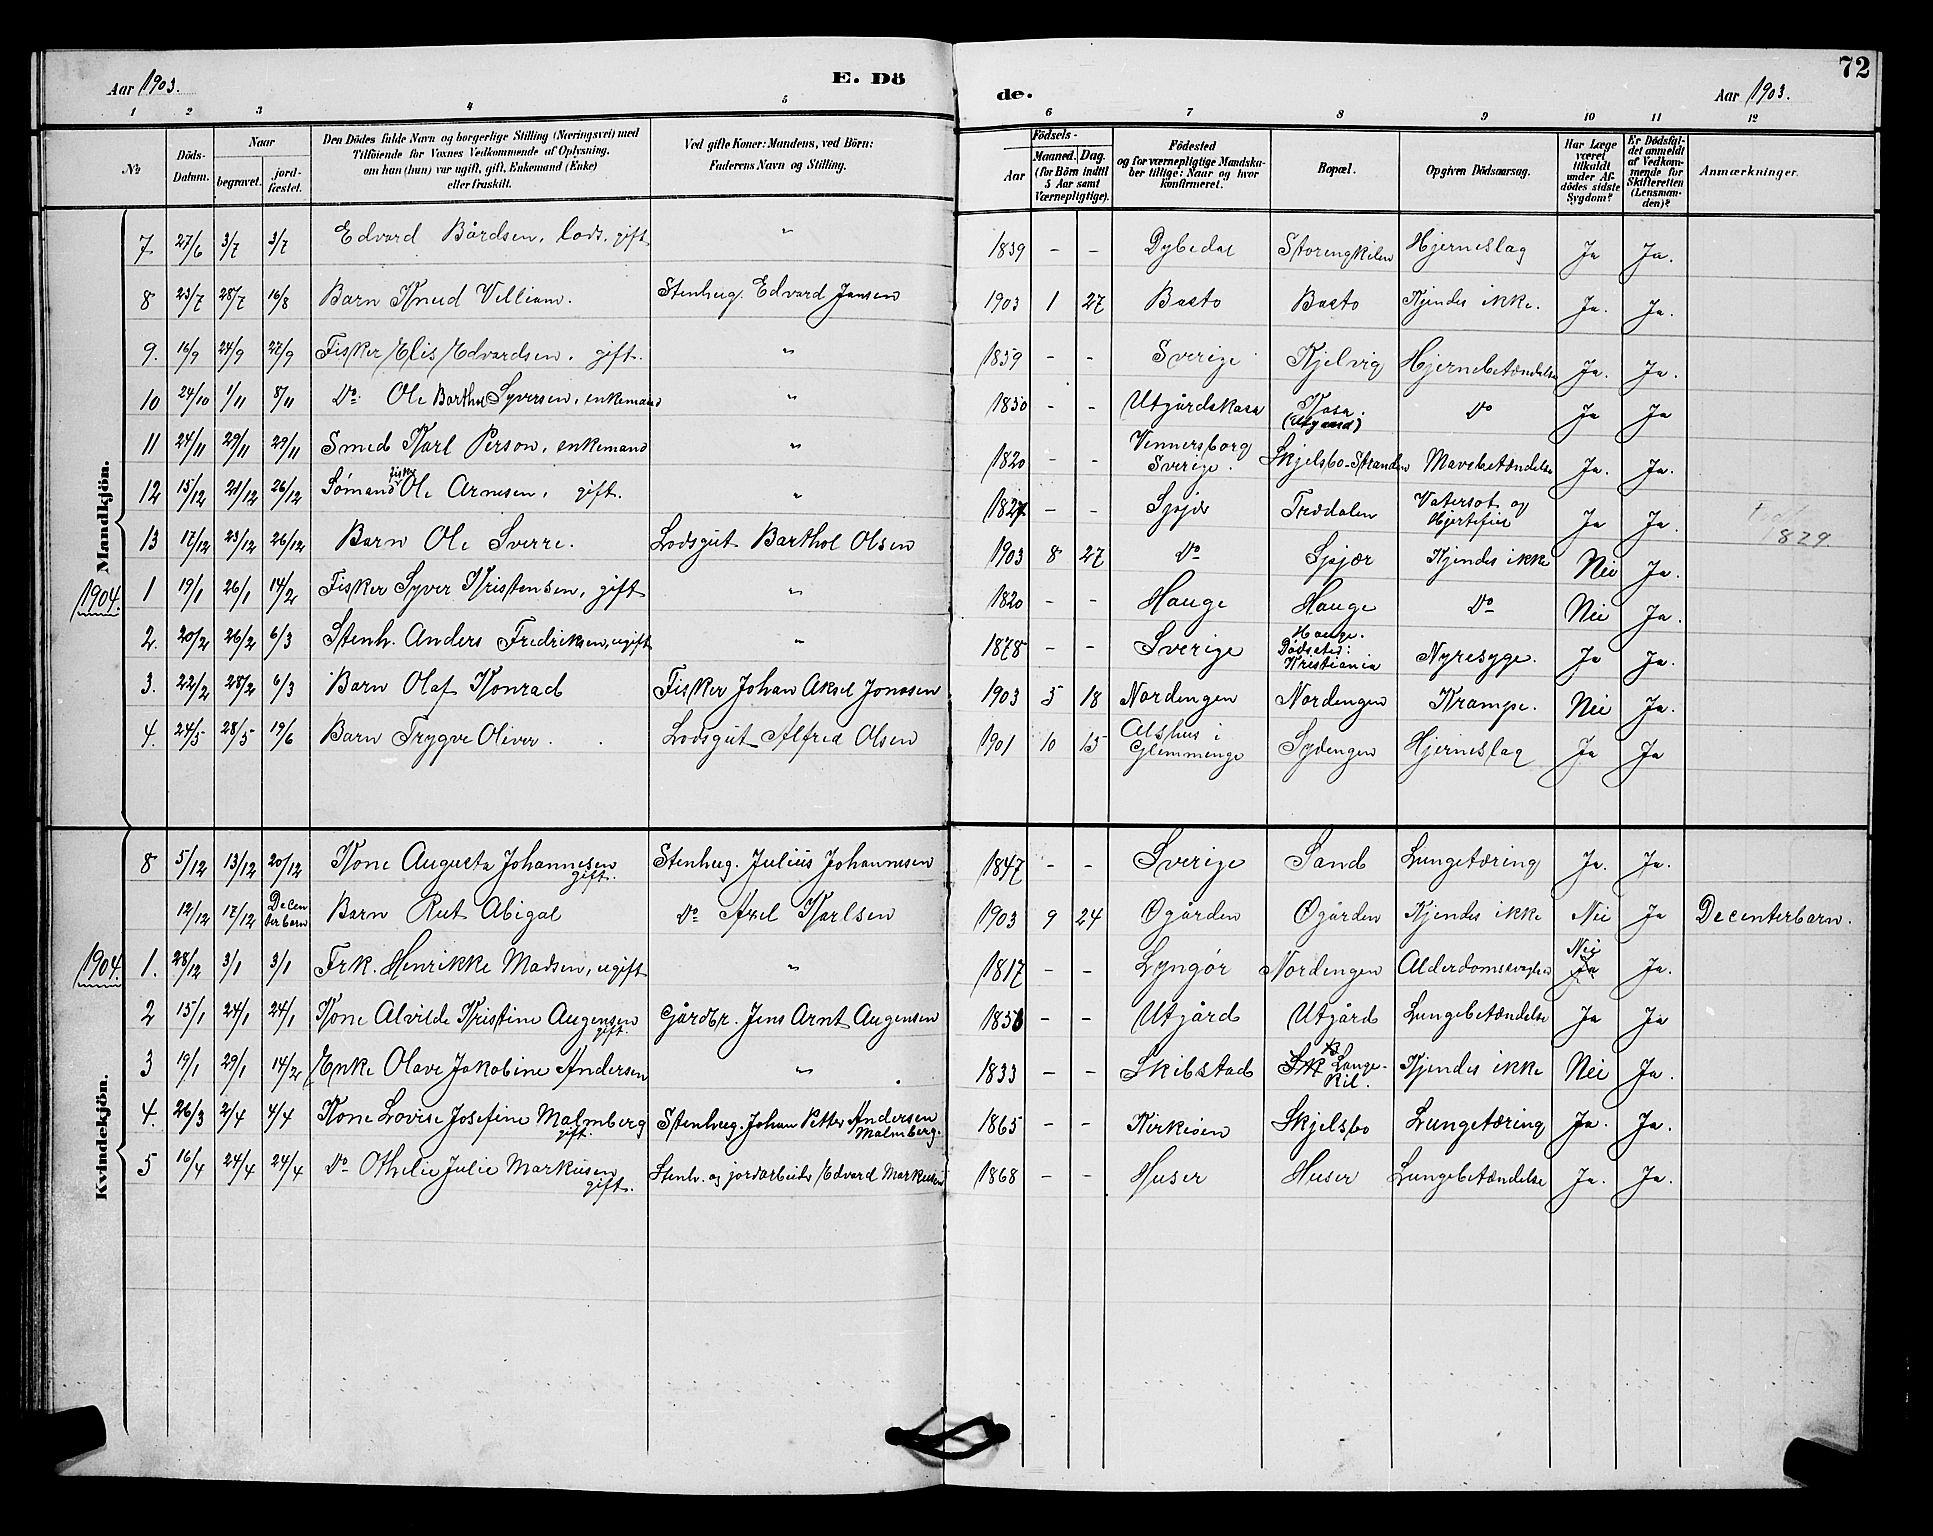 72
Aar 1903.
E. Dö
de.
Aar 1903.
1 2 3 4 5 6 7 8 9 10 11 12
№
Döds-
Datum.
Naar
begravet.
jord-
fæstet.
Den Dödes fulde Navn og borgerlige Stilling (Næringsvei) med
Tilföiende for Voxnes Vedkommende af Oplysning,
om han (hun) var ugift, gift, Enkemand (Enke)
eller fraskilt.
Ved gifte Koner: Mandens, ved Börn:
Faderens Navn og Stilling.
Födsels-
Aar
Maaned. Dag.
(for Börn indtil
5 Aar samt
Værnepligtige).
Födested
og for værnepligtige Mandska-
ber tillige: Naar og hvor
konfirmeret.
Bopæl.
Opgiven Dödsaarsag.
Har Læge
været
tilkaldt
under Af-
dödes sidste
Sygdom?
Er Dödsfal-
det anmeldt
af Vedkom-
mende for
Skifteretten
(Lensman-
den)?
Anmærkninger.
Mandkjön.
7 27/6 3/7 3/7 Edvard Bårdsen, Lods, gift " 1839 - - Dybedal Storengkilen Hjerneslag Ja Ja.
8 23/7 28/7 16/8 Barn Knud Villiam. Stenhug. Edvard Jansen 1903 1 27 Basto Basto Kjendes ikke. Ja. Ja.
9. 16/9 24/9 27/9 Fisker Elis Edvardsen, gift. " 1859 - - Sverige Kjelvig Hjernebetændelse Ja. Ja.
10 24/10 1/11 8/11 Do. Ole Barthol Syversen, enkemand " 1850 - - Utgårdskasa Kasa. (Utgaard) Do Ja Ja
11 24/11 29/11 29/11 Smed Karl Person, enkemand " 1820 - - Vennersborg Sverige. Skjelsbo-Stranden Mavebetændelse Ja. Ja.
12 15/12 21/12 26/12 Sömand fisker Ole Arnesen, gift. " 1827 - - Sjøjær Trædalen Vatersot og Hjertefeil Ja Ja. 1829.
13 17/12 23/12 26/12 Barn Ole Sverre. Lodsgut Barthol Olsen 1903 8 27 Do Sjøjær Kjendes ikke Nei Ja.
1904.
1 19/1 26/1 14/2 Fisker Syver Kristensen, gift " 1820 - - Hauge Hauge Do Nei Ja.
2. 20/2 26/2 6/3 Stenh. Anders Fredriksen, ugift " 1878 - - Sverige Hauge. Dødssted: Kristiania Nyresyge. Ja Ja.
3. 22/2 28/2 6/3 Barn Olaf Konrad Fisker Johan Aksel Jonasen 1903 5 18 Nordengen Nordengen Krampe. Nei Ja.
4. 24/5 28/5 19/6 Barn Trygve Oliver. Lodsgut Alfred Olsen 1901 10 15 Alshus i Glemmenge Sydengen Hjerneslag Ja Ja
Kvindekjön.
8 5/12 13/12 20/12 Kone Augusta Johannesen gift. Stenhug. Julius Johannesen 1847 - - Sverige Sand Lungetæring Ja. Ja.
12/12 17/12 Decenterbarn Barn Rut Abigal Do Axel Karlsen 1903 9 24 Øgården Øgården Kjendes ikke Nei Ja Decenterbarn.
1904.
1. 28/12 3/1 3/1 Frk. Henrikke Madsen, ugift " 1817 - - Lyngør Nordengen Alderdomssvaghed Nei Ja Ja.
2 15/1 24/1 24/1 Kone Alvilde Kristine Augensen gift. Gårdbr. Jens Arnt Augensen 1856 - - Utgård Utgård Lungebetændelse Ja Ja
3 19/1 29/1 14/2 Enke Olave Jakobine Andersen " 1833 - - Skibstad Langekil. Kjendes ikke Nei Ja.
4. 26/3 2/4 4/4 Kone Lovise Josefine Malmberg gift. Stenhug. Johan Petter Andersen Malmberg. 1865 - - Kirkøen Skjelsbo Lungetæring Ja. Ja.
5 16/4 24/4 24/4 Do Othelie Julie Markusen gift. Stenh. og jordarbeider Edvard Markusen 1868 - - Huser Huser Lungebetændelse Ja. Ja.